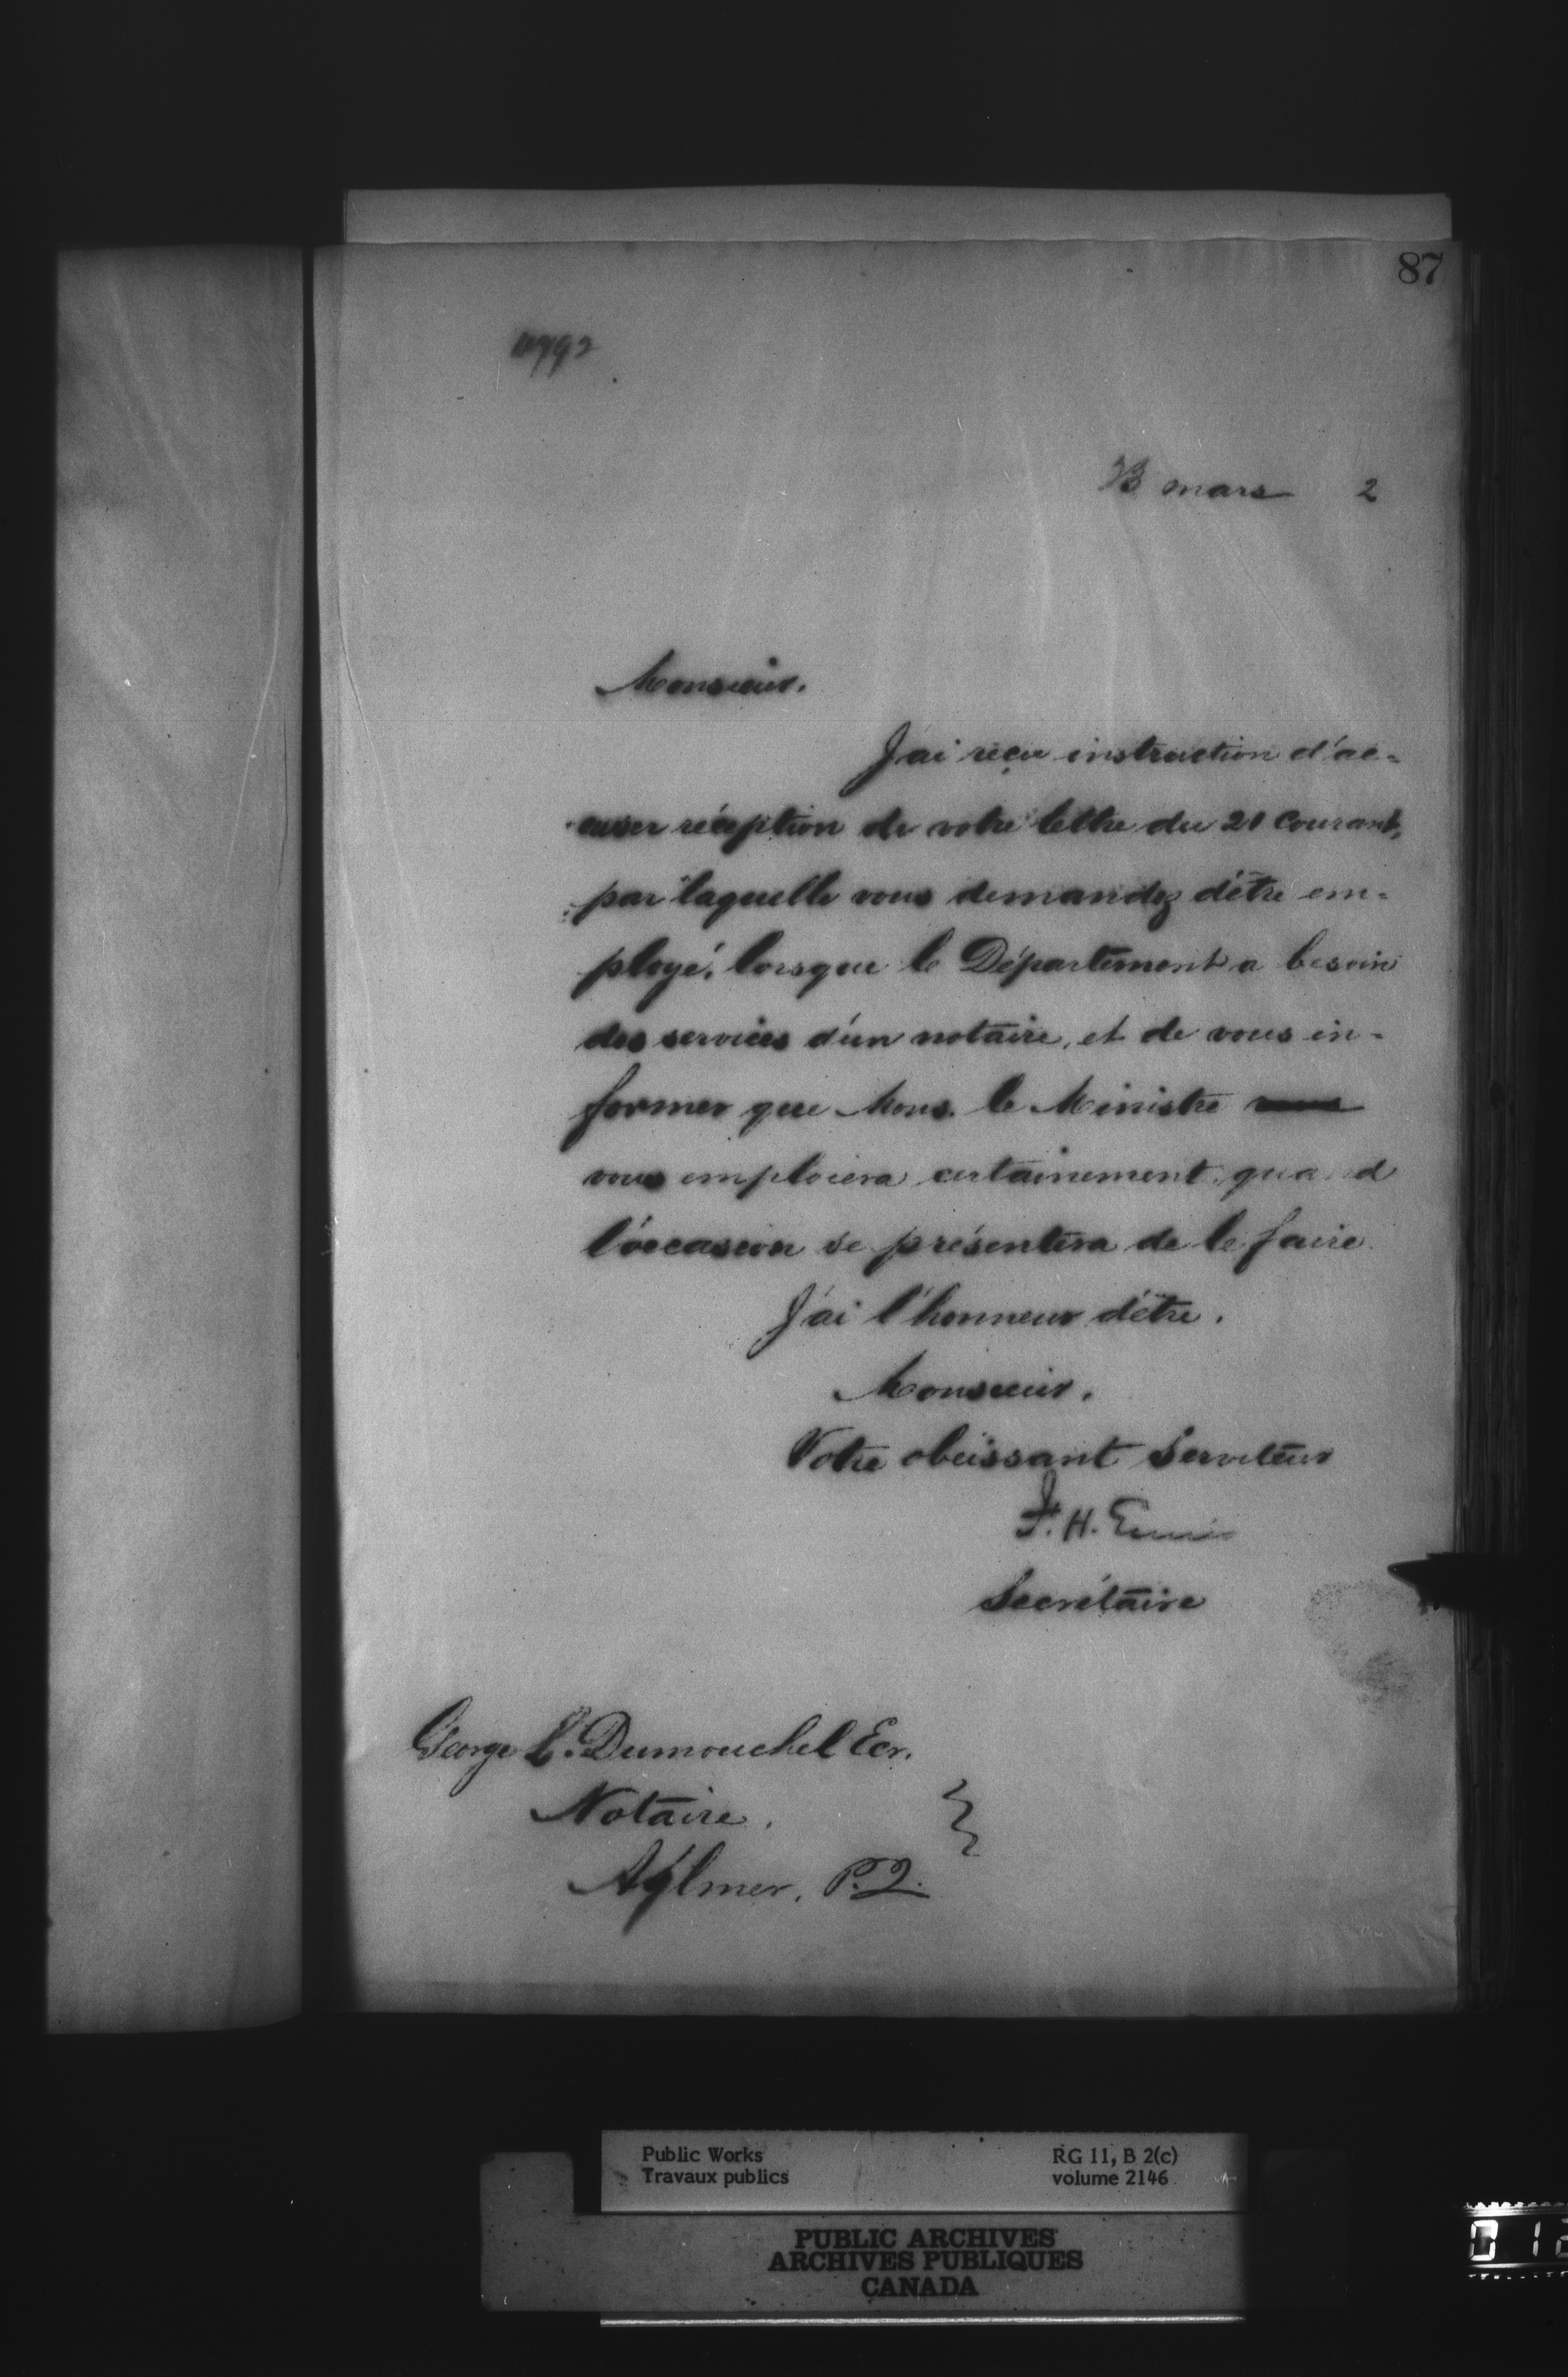 87
mars 2
Monsieur.
J'ai reçu instruction d'ac=
cuser réception de votre lettre du 20 Courant,
par laquelle vous demandez d'être em=
ployé, lorsque le Département a besoin
des services d'un notaire, et de vous in=
former que Mons. le Ministre
vous emploiera certainement quand
l'occasion se présentera de le faire
J'ai l'honneur d'être.
Monsieur.
Votre obéissant Serviteur
F. H. Ennis
Secrétaire
George L. Dumouchel Ecr.
Notaire.
Aylmer, P.Q.
Public Works
Travaux publics
RG 11, B 2(c)
volume 2146
PUBLIC ARCHIVES
ARCHIVES PUBLIQUES
CANADA